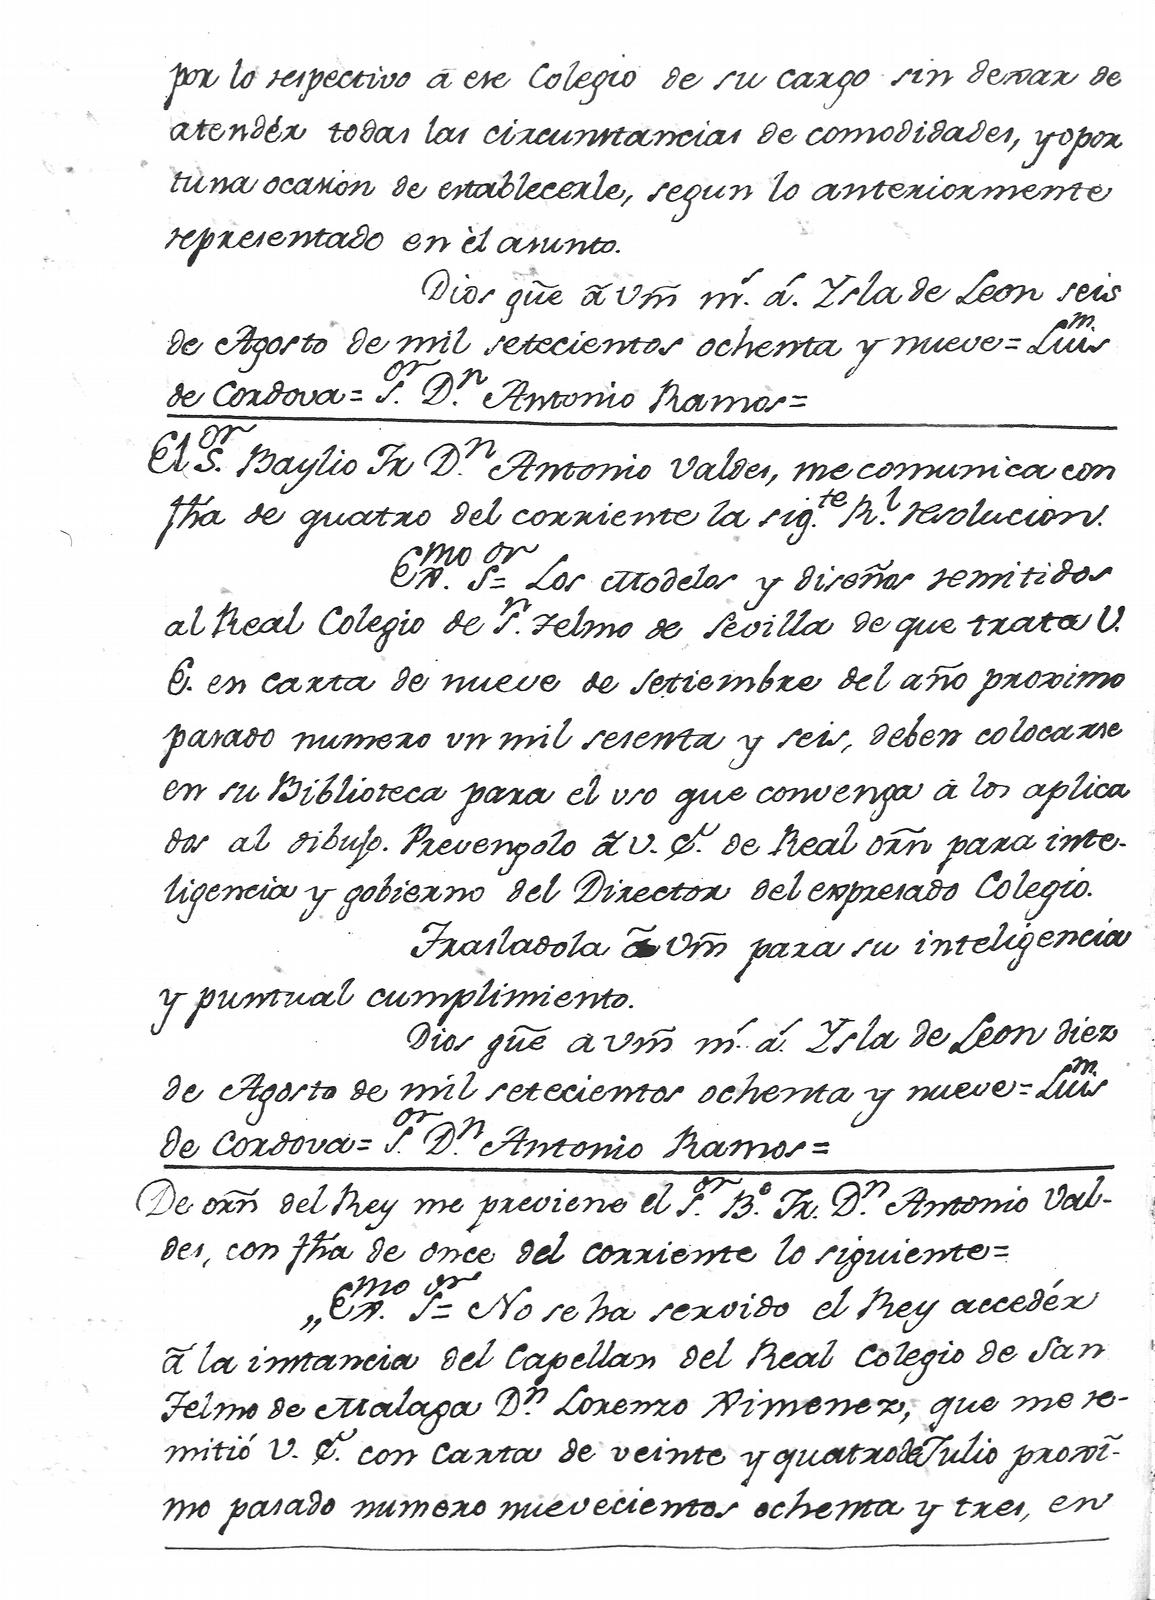 por lo respectivo â ese Colegio de su cargo sin dexar de
atendér todas las circunstancias de comodidades, y opor
tuna ocasion de establecerle, segun lo anteriormente
representado en èl asunto.
Dios gũe ã Vm̃ m.ˢ a.ˢ Ysla de Leon seis
de Agosto de mil setecientos ochenta y nueve = Luis
de Cordova = S.ᵒʳ D.ⁿ Antonio Ramos =
El S.ᵒʳ Baylio Fr D.ⁿ Antonio Valdes, me comunica con
fha de quatro del corriente la sig.ᵗᵉ R.ˡ resolucion.
Ex.ᵐᵒ S.ᵒʳ = Los Modelos y diseños remitidos
al Real Colegio de S.ⁿ Telmo de Sevilla de que trata V.
E. en carta de nueve de setiembre del año proximo
pasado numero un mil sesenta y seis, deben colocarse
en su Biblioteca para el uso que convenga â los aplica
dos al dibujo. Prevengolo ã V. E. de Real orñ para inte-
ligencia y gobierno del Director del expresado Colegio.
Trasladola ã Vm̃ para su inteligencia
y puntual cumplimiento.
Dios gũe a Vm̃ m.ˢ a.ˢ Ysla de Leon diez
de Agosto de mil setecientos ochenta y nueve = Luis
de Cordova = S.ᵒʳ D.ⁿ Antonio Ramos =
De orñ del Rey me previene el S.ᵒʳ B.º Fr. D.ⁿ Antonio Val-
des, con fha de once del corriente lo siguiente =
„Ex.ᵐᵒ S.ᵒʳ = No se ha servido el Rey accedér
ã la instancia del Capellan del Real Colegio de San
Telmo de Malaga D.ⁿ Lorenzo Ximenez, que me re-
mitió V. E. con Carta de veinte y quatro de Julio proxĩ-
mo pasado numero nuevecientos ochenta y tres, en